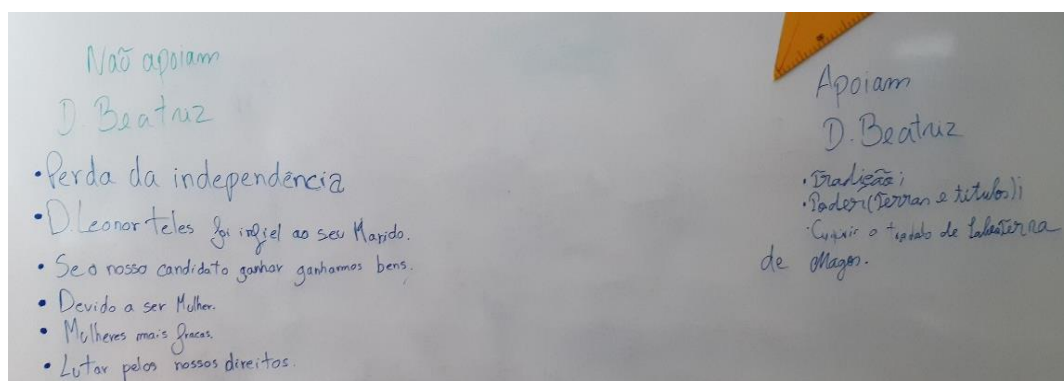 Não apoiam
D. Beatriz
• Perda da independência
• D. Leonor teles foi infiel ao seu Marido.
• Se o nosso candidato ganhar ganharmos bens.
• Devido a ser Mulher.
• Mulheres mais fracas.
• Lutar pelos nossos direitos.
Apoiam
D. Beatriz
• Tradição;
• Poder (Terras e títulos);
• o de
de Magos.